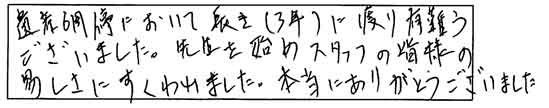 遺産調停において長き(3年)に渡り有難う
ございました。先生を始めスタッフの皆様の
易しさにすくわれました。本当にありがとうございました